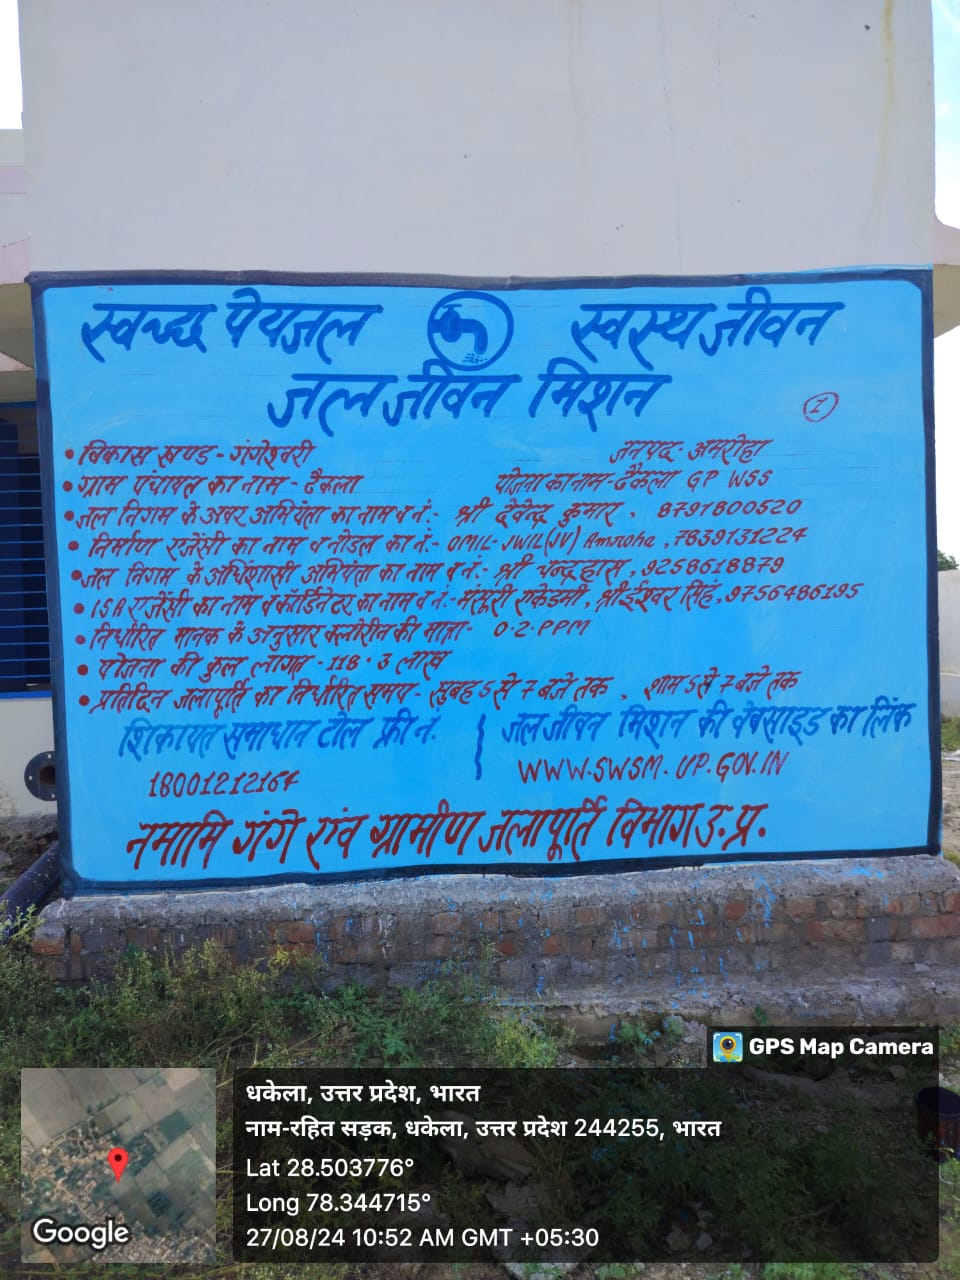 स्वच्छ पेयजल स्वस्थ जीवन
जल जीवन मिशन
1
• विकास खण्ड - गंगेश्वरी जनपद - अमरोहा
• ग्राम पंचायत का नाम - ढैकला योजना का नाम - ढैकला GP WSS
• जल निगम के अवर अभियंता का नाम व नं. - श्री देवेन्द्र कुमार, 8791800520
• निर्माण एजेंसी का नाम व नोडल का नं. - OMIL-JWIL(JV) Amroha, 7839131224
• जल निगम के अधिशासी अभियंता का नाम व नं. : श्री चन्द्रहास, 9258618879
• ISA एजेंसी का नाम व कॉर्डिनेटर का नाम व नं. - मंसूरी एकेडमी, श्री ईश्वर सिंह, 9756486195
• निर्धारित मानक के अनुसार क्लोरीन की मात्रा - 0.2 PPM
• योजना की कुल लागत - 118.3 लाख
• प्रतिदिन जलापूर्ति का निर्धारित समय - सुबह 5 से 7 बजे तक, शाम 5 से 7 बजे तक
शिकायत समाधान टोल फ्री नं.
18001212164
जल जीवन मिशन की वेबसाइड का लिंक
WWW.SWSM.UP.GOV.IN
नमामि गंगे एंव ग्रामीण जलापूर्ति विभाग उ.प्र.
GPS Map Camera
धकेला, उत्तर प्रदेश, भारत
नाम-रहित सड़क, धकेला, उत्तर प्रदेश 244255, भारत
Lat 28.503776°
Long 78.344715°
27/08/24 10:52 AM GMT +05:30
Google